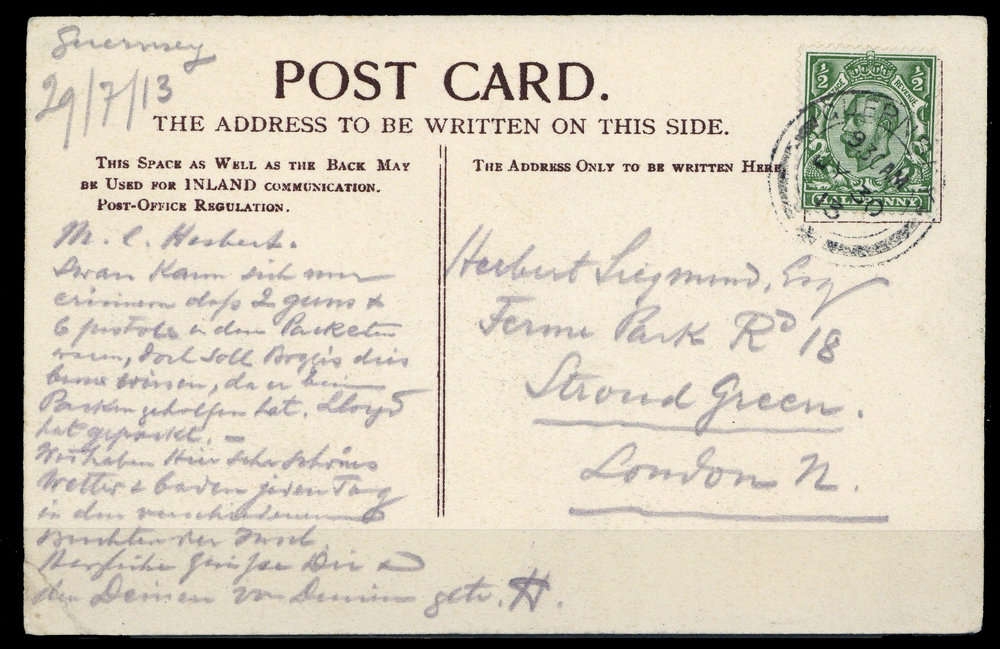 Guernsey
29/7/13
POST CARD.
THE ADDRESS TO BE WRITTEN ON THIS SIDE.
THIS SPACE AS WELL AS THE BACK MAY
BE USED FOR INLAND COMMUNICATION.
POST-OFFICE REGULATION.
M. l. Herbert.
Swan kann sich nur
erinnern daß 2 guns &
6 pistols in den Packeten
waren, doch soll Boggis dies
wissen, da er beim
Packen geholfen hat. Lloyd
hat gepackt. —
Wir haben hier sehr schönes
Wetter & baden jeden Tag
in den verschiedenen
Buchten der Insel.
Herzliche Grüße Dir &
den Deinen von Deinem getr. H.
THE ADDRESS ONLY TO BE WRITTEN HERE
Herbert Siegmund, Esq
Ferme Park Rd 18
Stroud Green.
London N.
½ ½
REVENUE
HALFPENNY
930 AM
JY 30
13